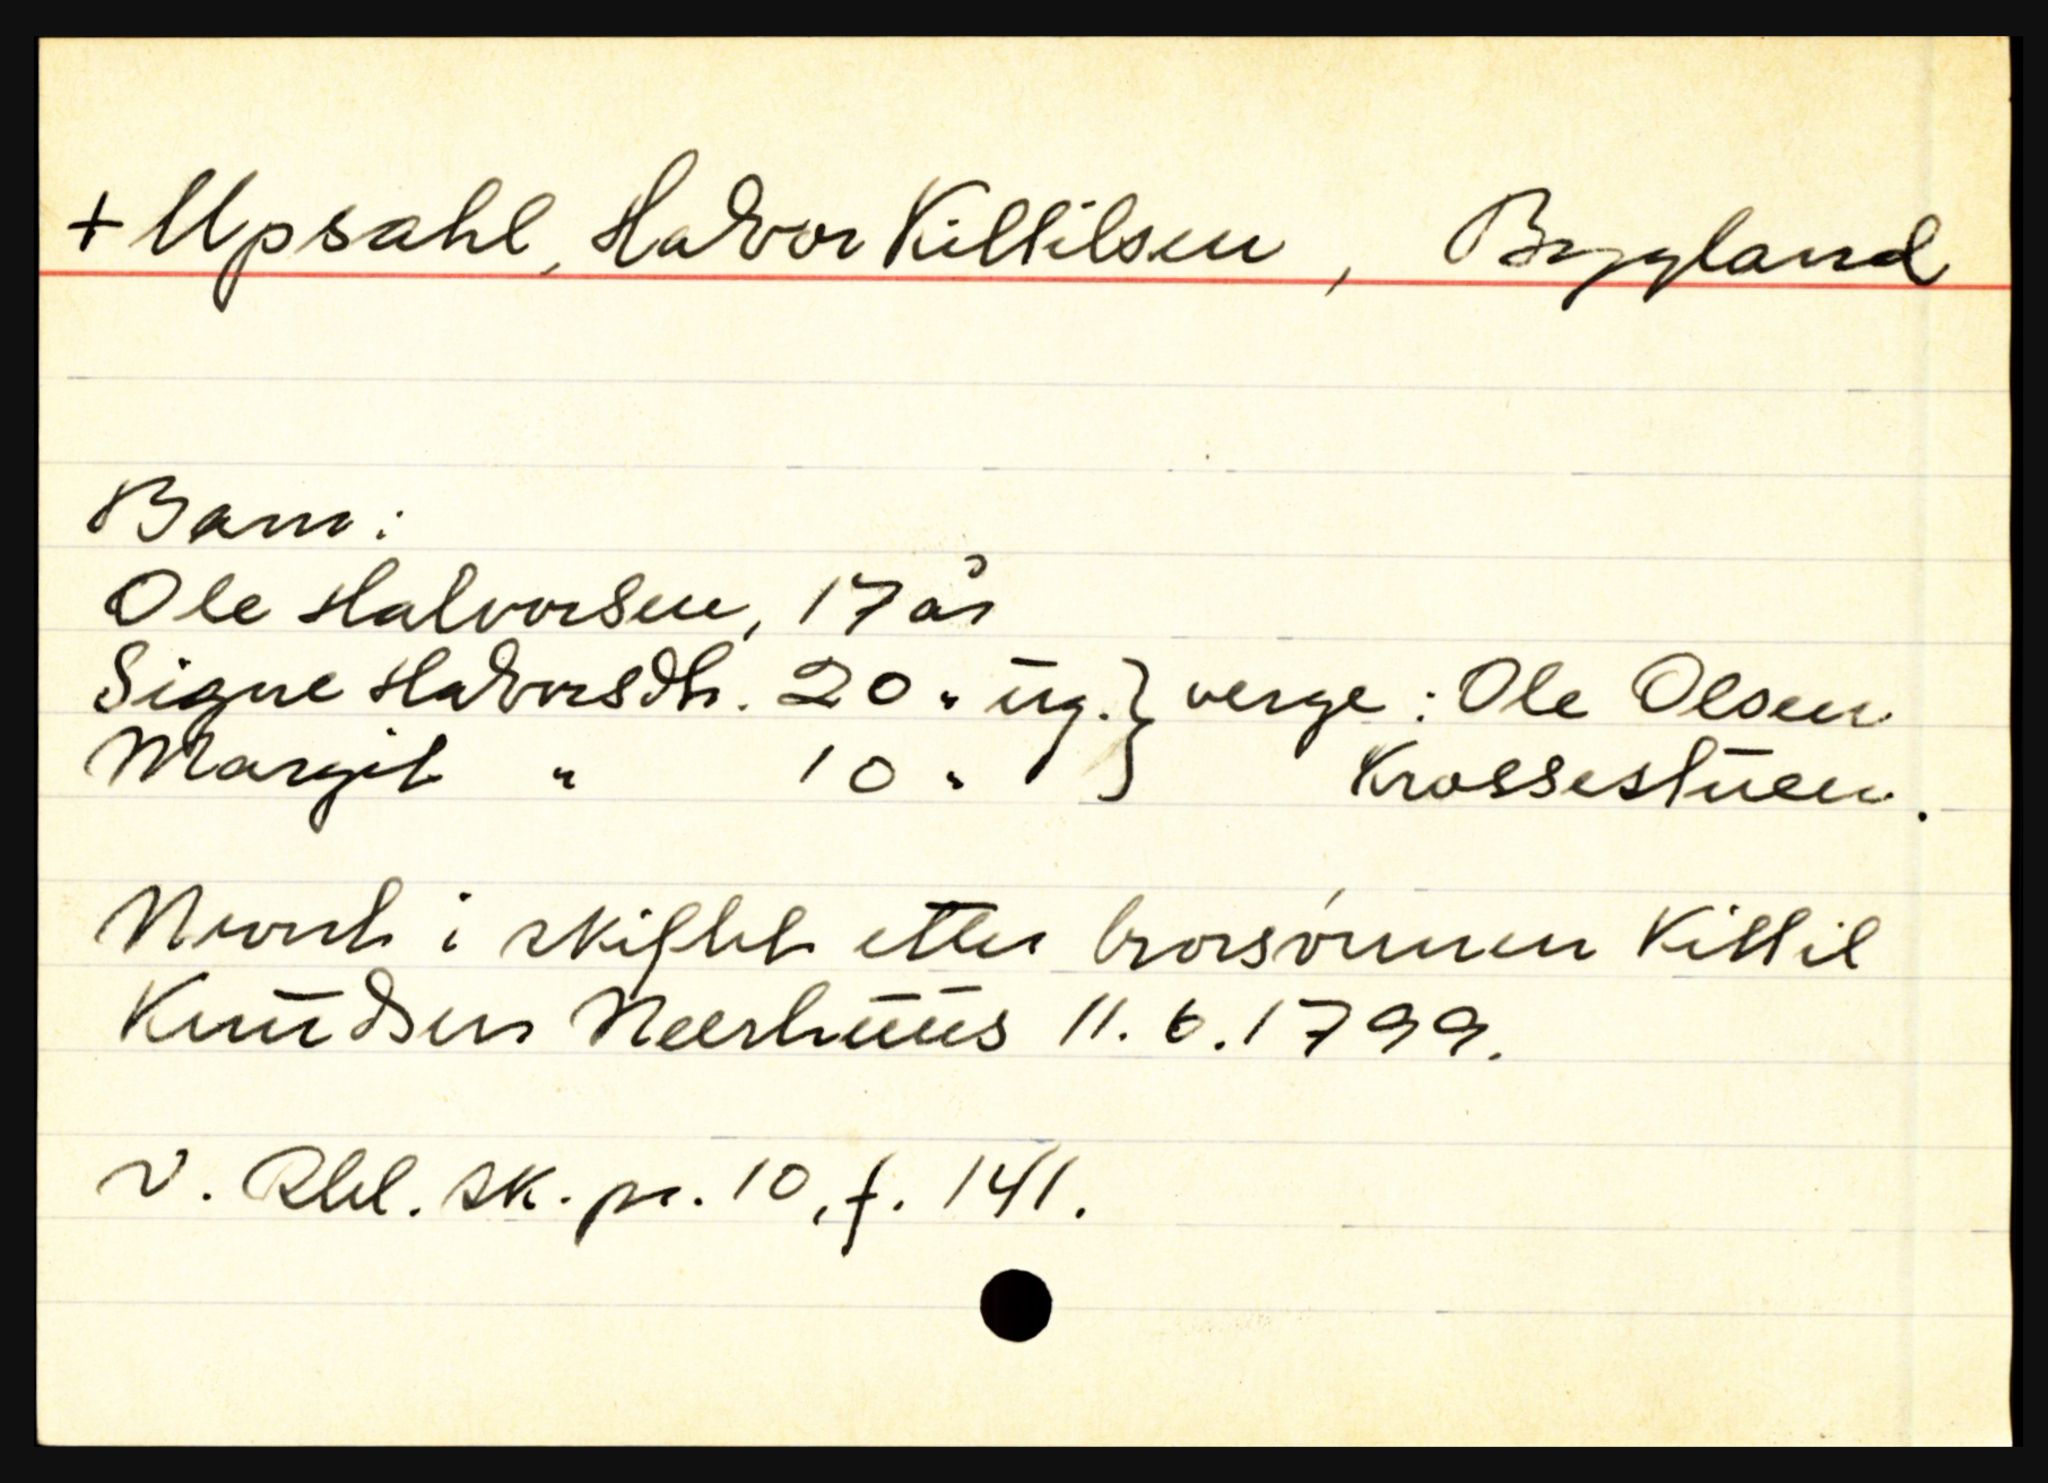 + Upsahl, Halvor Kittilsen, Bygland
Barn:
Ole Halvorsen, 17 år
Signe Halvorsdtr. 20 " ug. } verge: Ole Olsen
Margit " 10 " } Krossestuen.
Nevnt i skiftet etter brorsønnen Kittil
Knudsen Neerhuus 11.6.1799.
V. Rbl. sk. pr. 10, f. 141.